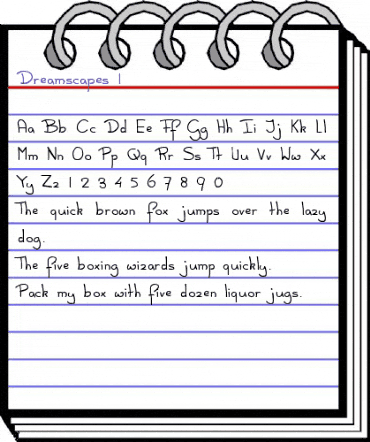 Dreamscapes 1
Aa Bb Cc Dd Ee Ff Gg Hh Ii Jj Kk Ll
Mm Nn Oo Pp Qq Rr Ss Tt Uu Vv Ww Xx
Yy Zz 1 2 3 4 5 6 7 8 9 0
The quick brown fox jumps over the lazy
dog.
The five boxing wizards jump quickly.
Pack my box with five dozen liquor jugs.